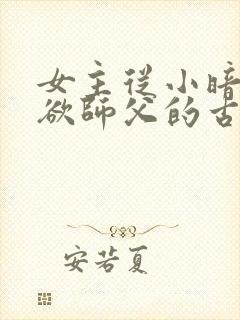 女主從小暗
欲師父的古
安若夏